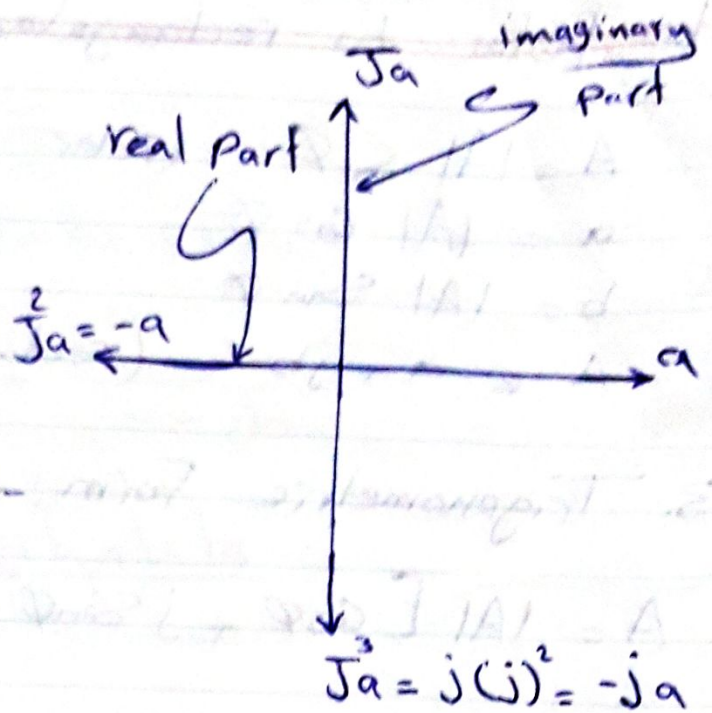 imaginary
part
Ja
real part
J²a = -a
a
J³a = j(j)² = -ja